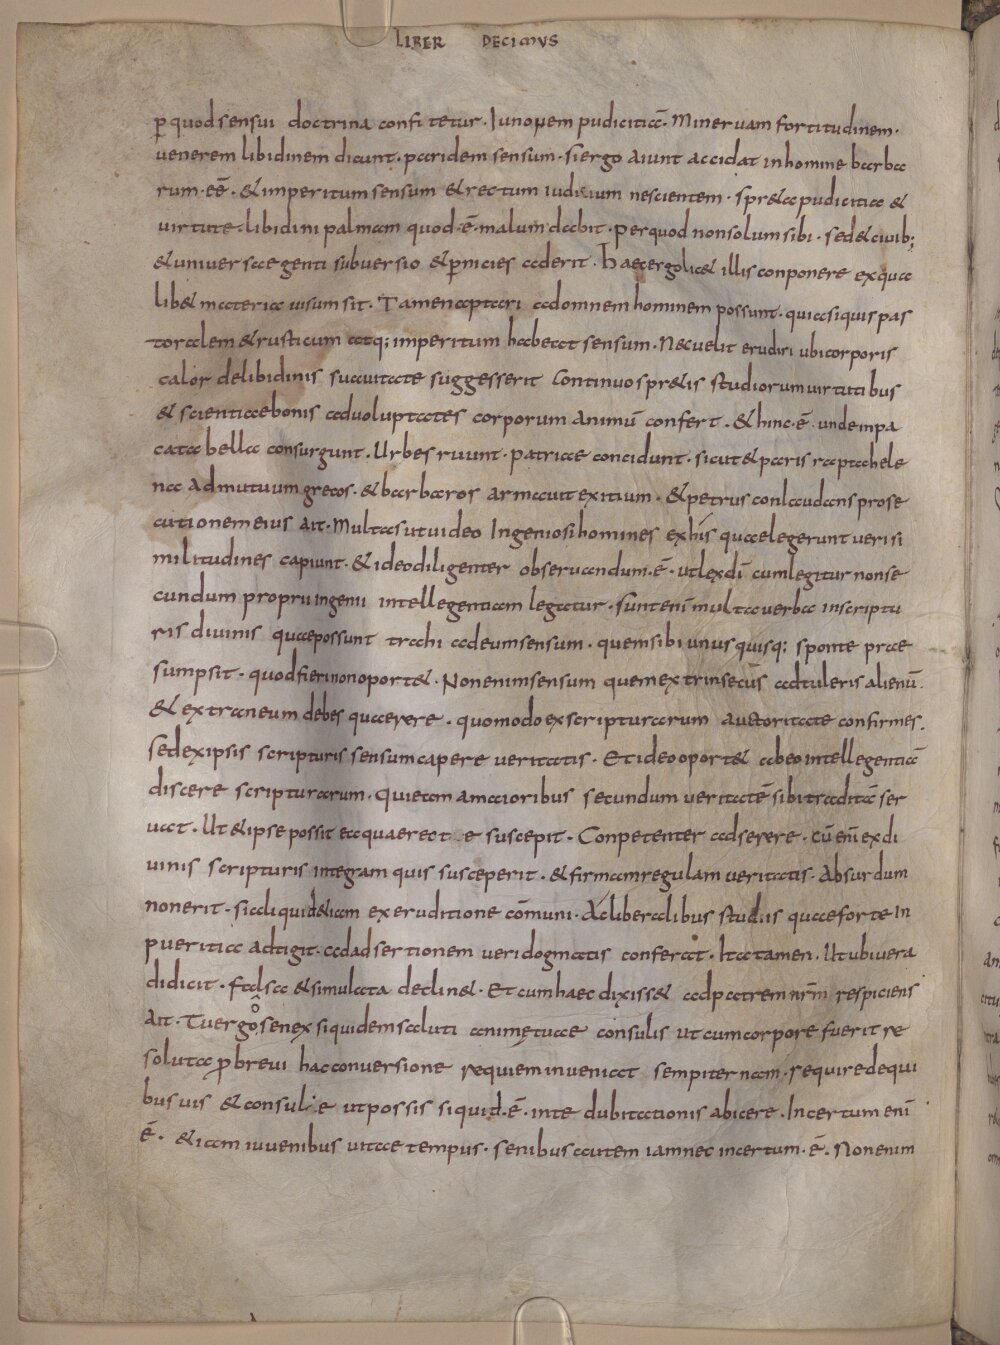 LIBER DECIMVS
ꝑ quod sensui doctrina confitetur · Iunonem pudiciticā · Mineruam fortitudinem ·
uenerem libidinem dicunt · paridem sensum · si ergo aiunt accidat in homine barba
rum · eē · & imperitum sensum & rectum iudicium nescientem · spr&a pudicitia &
uirtute · libidini palmam quod · ē · malum dabit · per quod non solum sibi · sed & ciuib;
& uniuersae genti subuersio & ꝑnicies aderit · Haec ergo lic& illis conponere ex qua
lib& materia uisum sit · Tamen aptari ad omnem hominem possunt · quia si quis pas
toralem & rusticum atq; imperitum habeat sensum · Nec uelit erudiri ubi corporis
calor de libidinis suauitate suggesserit Continuo spr&is studiorum uirtutibus
& scientiae bonis ad uoluptates corporum animū confert · & hinc · ē · unde inpa
cata bella consurgunt · Urbes ruunt · patriae concidunt · sicut & paris rapta hele
na ad mutuum grecos · & barbaros armauit exitium · & petrus conlaudans prose
cutionem eius ait · Multas ut uideo Ingeniosi homines ex his quae legerunt ueri si
militudines capiunt · & ideo diligenter obseruandum · ē · ut lex dī cum legitur non se
cundum proprii ingenii intellegentiam legatur · sunt enī multa uerba in scriptu
ris diuinis quae possunt trahi ad eum sensum · quem sibi unusquisq; sponte prae
sumpsit · quod fieri non oport& · Non enim sensum quem extrinsecus adtuleris alienū ·
& extraneum debes quaerere · quomodo ex scripturarum auctoritate confirmes ·
sed ex ipsis scripturis sensum capere ueritatis · Et ideo oport& ab eo intellegentiā
discere scripturarum · Qui eam a maioribus secundum ueritatē sibi traditā ser
uat · Ut & ipse possit ea quae rect e suscepit · Conpetenter adserere · cū enī ex di
uinis scripturis integram quis susceperit · & firmam regulam ueritatis · Absurdum
non erit · si aliquid &iam ex eruditione cōmuni · Ac liberalibus studiis quae forte in
pueritia adtigit · ad adsertionem ueri dogmatis conferat · Ita tamen · Ut ubi uera
didicit · falsa & simulata declin& · Et cum haec dixiss& ad patrem nrm̄ respiciens
Ait · Tu ergo ô senex si quidem saluti animę tuae consulis ut cum corpore fuerit re
soluta ꝓ breui hac conuersione requiem inueniat sempiternam · require de qui
bus uis & consule ut possis si quid · ē · in te dubitationis abicere · Incertum enī
ē · &iam iuuenibus uitae tempus · senibus autem iam nec incertum · ē · Non enim